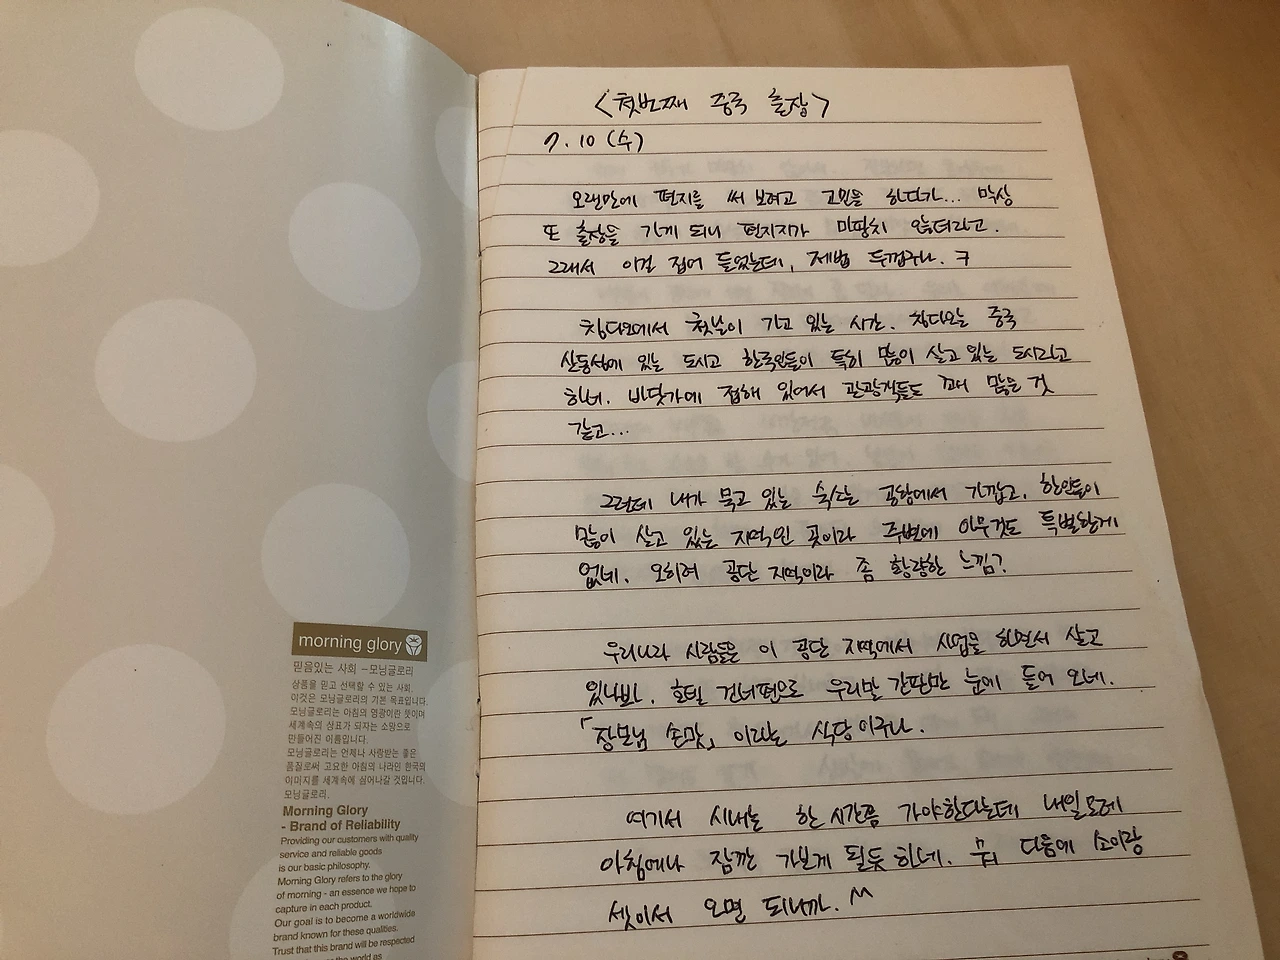 <첫번째 중국 출장>
7. 10 (수)
오랜만에 편지를 써 보려고 고민을 하다가... 막상
또 출장을 가게 되니 편지지가 마땅치 않더라고.
그래서 이걸 집어 들었는데, 제법 두껍구나. ㅋ
칭다오에서 첫날이 가고 있는 시간. 칭다오는 중국
산동성에 있는 도시고 한국인들이 특히 많이 살고 있는 도시라고
하네. 바닷가에 접해 있어서 관광객들도 꽤 많은 것
같고...
그런데 내가 묵고 있는 숙소는 공항에서 가깝고, 한인들이
많이 살고 있는 지역인 곳이라 주변에 아무것도 특별한게
없네. 오히려 공단 지역이라 좀 황량한 느낌?
우리나라 사람들은 이 공단 지역에서 사업을 하면서 살고
있나봐. 호텔 건너편으로 우리말 간판만 눈에 들어 오네.
「장모님 손맛」 이라는 식당이구나.
여기서 시내는 한 시간쯤 가야한다는데 내일모레
아침에나 잠깐 가보게 될듯 하네. 뭐 다음에 소이랑
셋이서 오면 되니까. ^^
morning glory
믿음있는 사회 – 모닝글로리
상품을 믿고 선택할 수 있는 사회.
이것은 모닝글로리의 기본 목표입니다.
모닝글로리는 아침의 영광이란 뜻이며
세계속의 상표가 되자는 소망으로
만들어진 이름입니다.
모닝글로리는 언제나 사랑받는 좋은
품질로써 고요한 아침의 나라인 한국의
이미지를 세계속에 심어나갈 것입니다.
모닝글로리.
Morning Glory
- Brand of Reliability
Providing our customers with quality
service and reliable goods
is our basic philosophy.
Morning Glory refers to the glory
of morning - an essence we hope to
capture in each product.
Our goal is to become a worldwide
brand known for these qualities.
Trust that this brand will be respected
the world as